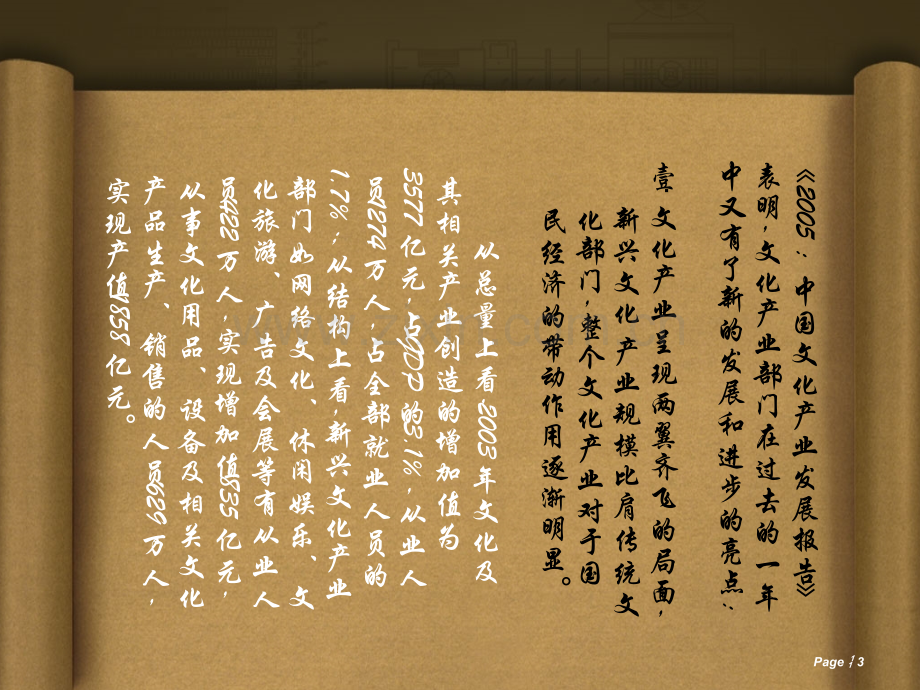 《2005：中国文化产业发展报告》
表明，文化产业部门在过去的一年
中又有了新的发展和进步的亮点：
壹 文化产业呈现两翼齐飞的局面，
新兴文化产业规模比肩传统文
化部门，整个文化产业对于国
民经济的带动作用逐渐明显。
从总量上看，2003年文化及
其相关产业创造的增加值为
3577亿元，占GDP的3.1%，从业人
员1274万人，占全部就业人员的
1.7%；从结构上看，新兴文化产业
部门如网络文化、休闲娱乐、文
化旅游、广告及会展等有从业人
员422万人，实现增加值835亿元；
从事文化用品、设备及相关文化
产品生产、销售的人员629万人，
实现产值1858亿元。
Page 13